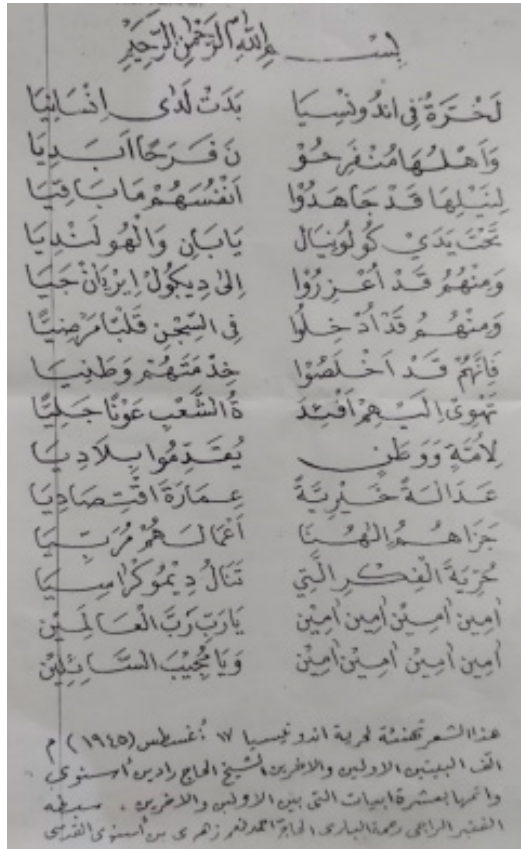 بِسْمِ اللّٰهِ الرَّحْمٰنِ الرَّحِيْمِ
لَحُرَّةٌ فِى اندُونسِيَا بَدَتْ لَدٰى اِنْسَانِيَا
وَاَهْلُهَا مُنْفَرِحُوْ نَ فَرَحًا اَبَدِيَا
لِنَيْلِهَا قَدْ جَاهَدُوْا اَنْفُسَهُمْ مَا بَاقِيَا
تَحْتَ يَدَيْ كُولُونِيَال يَابَانِ وَالْهُولَنْدِيَا
وَمِنْهُمُ قَدْ اُعْزِرُوْا اِلٰى دِيكُولْ اِيْرِيَانْ جَيَا
وَمِنْهُمُ قَدْ اُدْخِلُوا فِى السِّجْنِ قَلْبًا مَرْضِيًّا
فَاِنَّهُمْ قَدْ اَخْلَصُوْا خِدْمَتَهُمْ وَطَنِيَا
تَهْوِىْ اِلَيْهِمْ اَفْئِدَ ةُ الشَّعْبِ عَوْنًا جَلِيًّا
لِاُمَّةٍ وَوَطَنٍ يُقَدِّمُوا بِلَادِيَا
عَدَالَةً خَيْرِيَّةً عِمَارَةَ اقْتِصَادِيَا
جَزَاهُمُ اِلٰهُنَا اَعْمَالَهُمْ مُرَبِّيَا
حُرِّيَةَ الْفِكْرِ الَّتِي تَنَالُ دِيْمُوكْرَاسِيَا
اٰمِيْن اٰمِيْن اٰمِيْن اٰمِيْن يَارَبِّ رَبَّ الْعَالَمِيْن
اٰمِيْن اٰمِيْن اٰمِيْن اٰمِيْن وَيَا مُجِيْبَ السَّائِلِيْن
هذا الشعر تهنئة لحرية اندونيسيا ١٧ أغسطس (١٩٤٥) م
الف البيتين الاولين والاخرين الشيخ الحاج رادين أسنوي
واتمها بعشرة ابيات التى بين الاولين والاخرين . سبطه
الفقير الراجى رحمة البارى الحاج احمد زهرى بن أسنوى القدسى